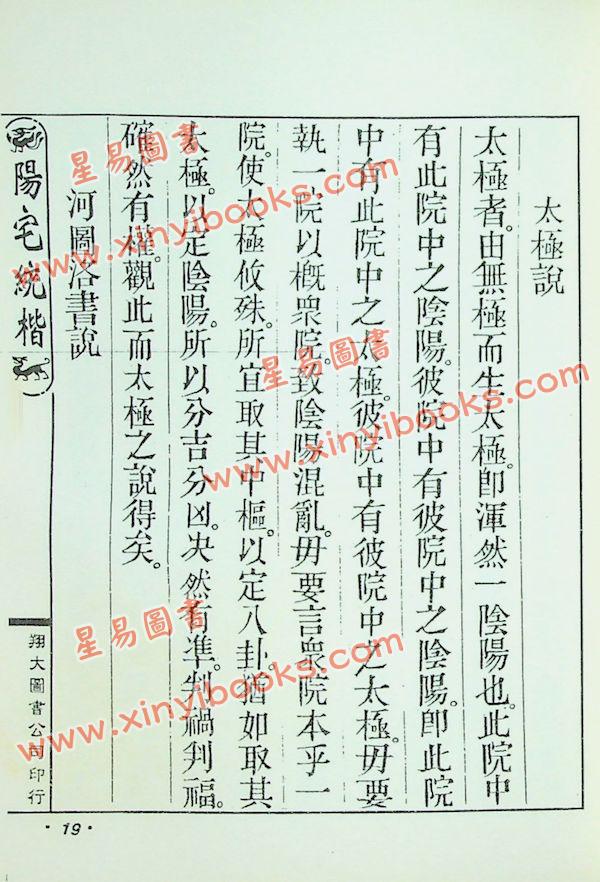 太極說
太極者。由無極而生太極。卽渾然一陰陽也。此院中
有此院中之陰陽。彼院中有彼院中之陰陽。卽此院
中有此院中之太極。彼院中有彼院中之太極。毋要
執一院以槪衆院。致陰陽混亂。毋要言衆院本乎一
院。使太極攸殊。所宜取其中樞。以定八卦。猶如取其
太極。以定陰陽。所以分吉分凶。決然有準。判禍判福。
確然有權。觀此而太極之說得矣。
河圖洛書說
陽宅統楷
翔大圖書公司印行
·19·
星易圖書
www.xinyibooks.com
星易圖書
www.xinyibooks.com
星易圖書
www.xinyibooks.com